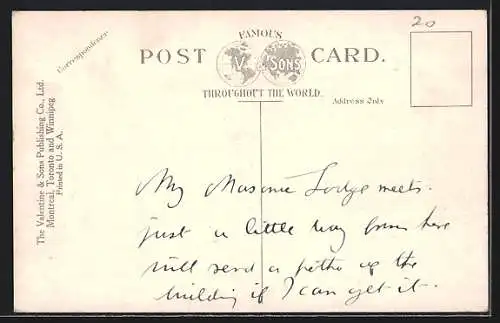 20
FAMOUS
POST CARD.
V. & SONS
THROUGHOUT THE WORLD.
Correspondence
Address Only
The Valentine & Sons Publishing Co., Ltd.
Montreal, Toronto and Winnipeg
Printed in U. S. A.
My Masonic Lodge meets.
just a little way from here
will send a photo of the
building if I can get it.